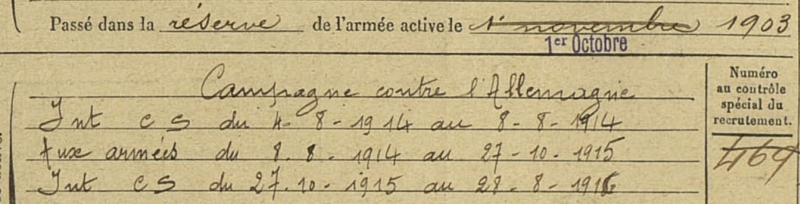 Passé dans la réserve de l'armée active le 1er novembre 1903
1er Octobre
Campagne contre l'Allemagne
Int C S du 4-8-1914 au 8-8-1914
Aux armées du 8.8-1914 au 27-10-1915
Int C S du 27.10-1915 au 28-8-1916
Numéro
au contrôle
spécial du
recrutement.
469